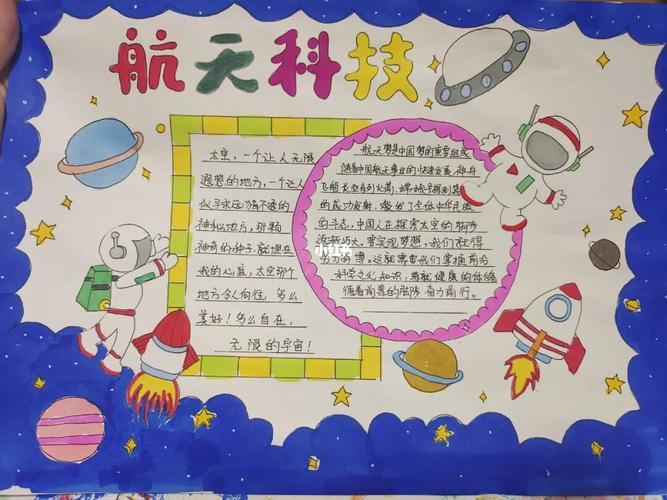 航天科技
太空，一个让人无限
遐想的地方，一个让人
似乎永远猜不透的
神秘地方，那颗
神奇的种子，就埋在
我的心底，太空那个
地方令人向往，多么
美好！多么自在，
无限的宇宙！
航天梦是中国梦的重要组成
随着中国航天事业的快速发展，神舟
飞船 长空系列火箭，嫦娥
的成功发射，激发了全体中华民族
的斗志，中国人在探索太空的
要实现梦想，我们就得
努力
科学文化知识，
循着前辈的脚步 奋力前行。
小红书